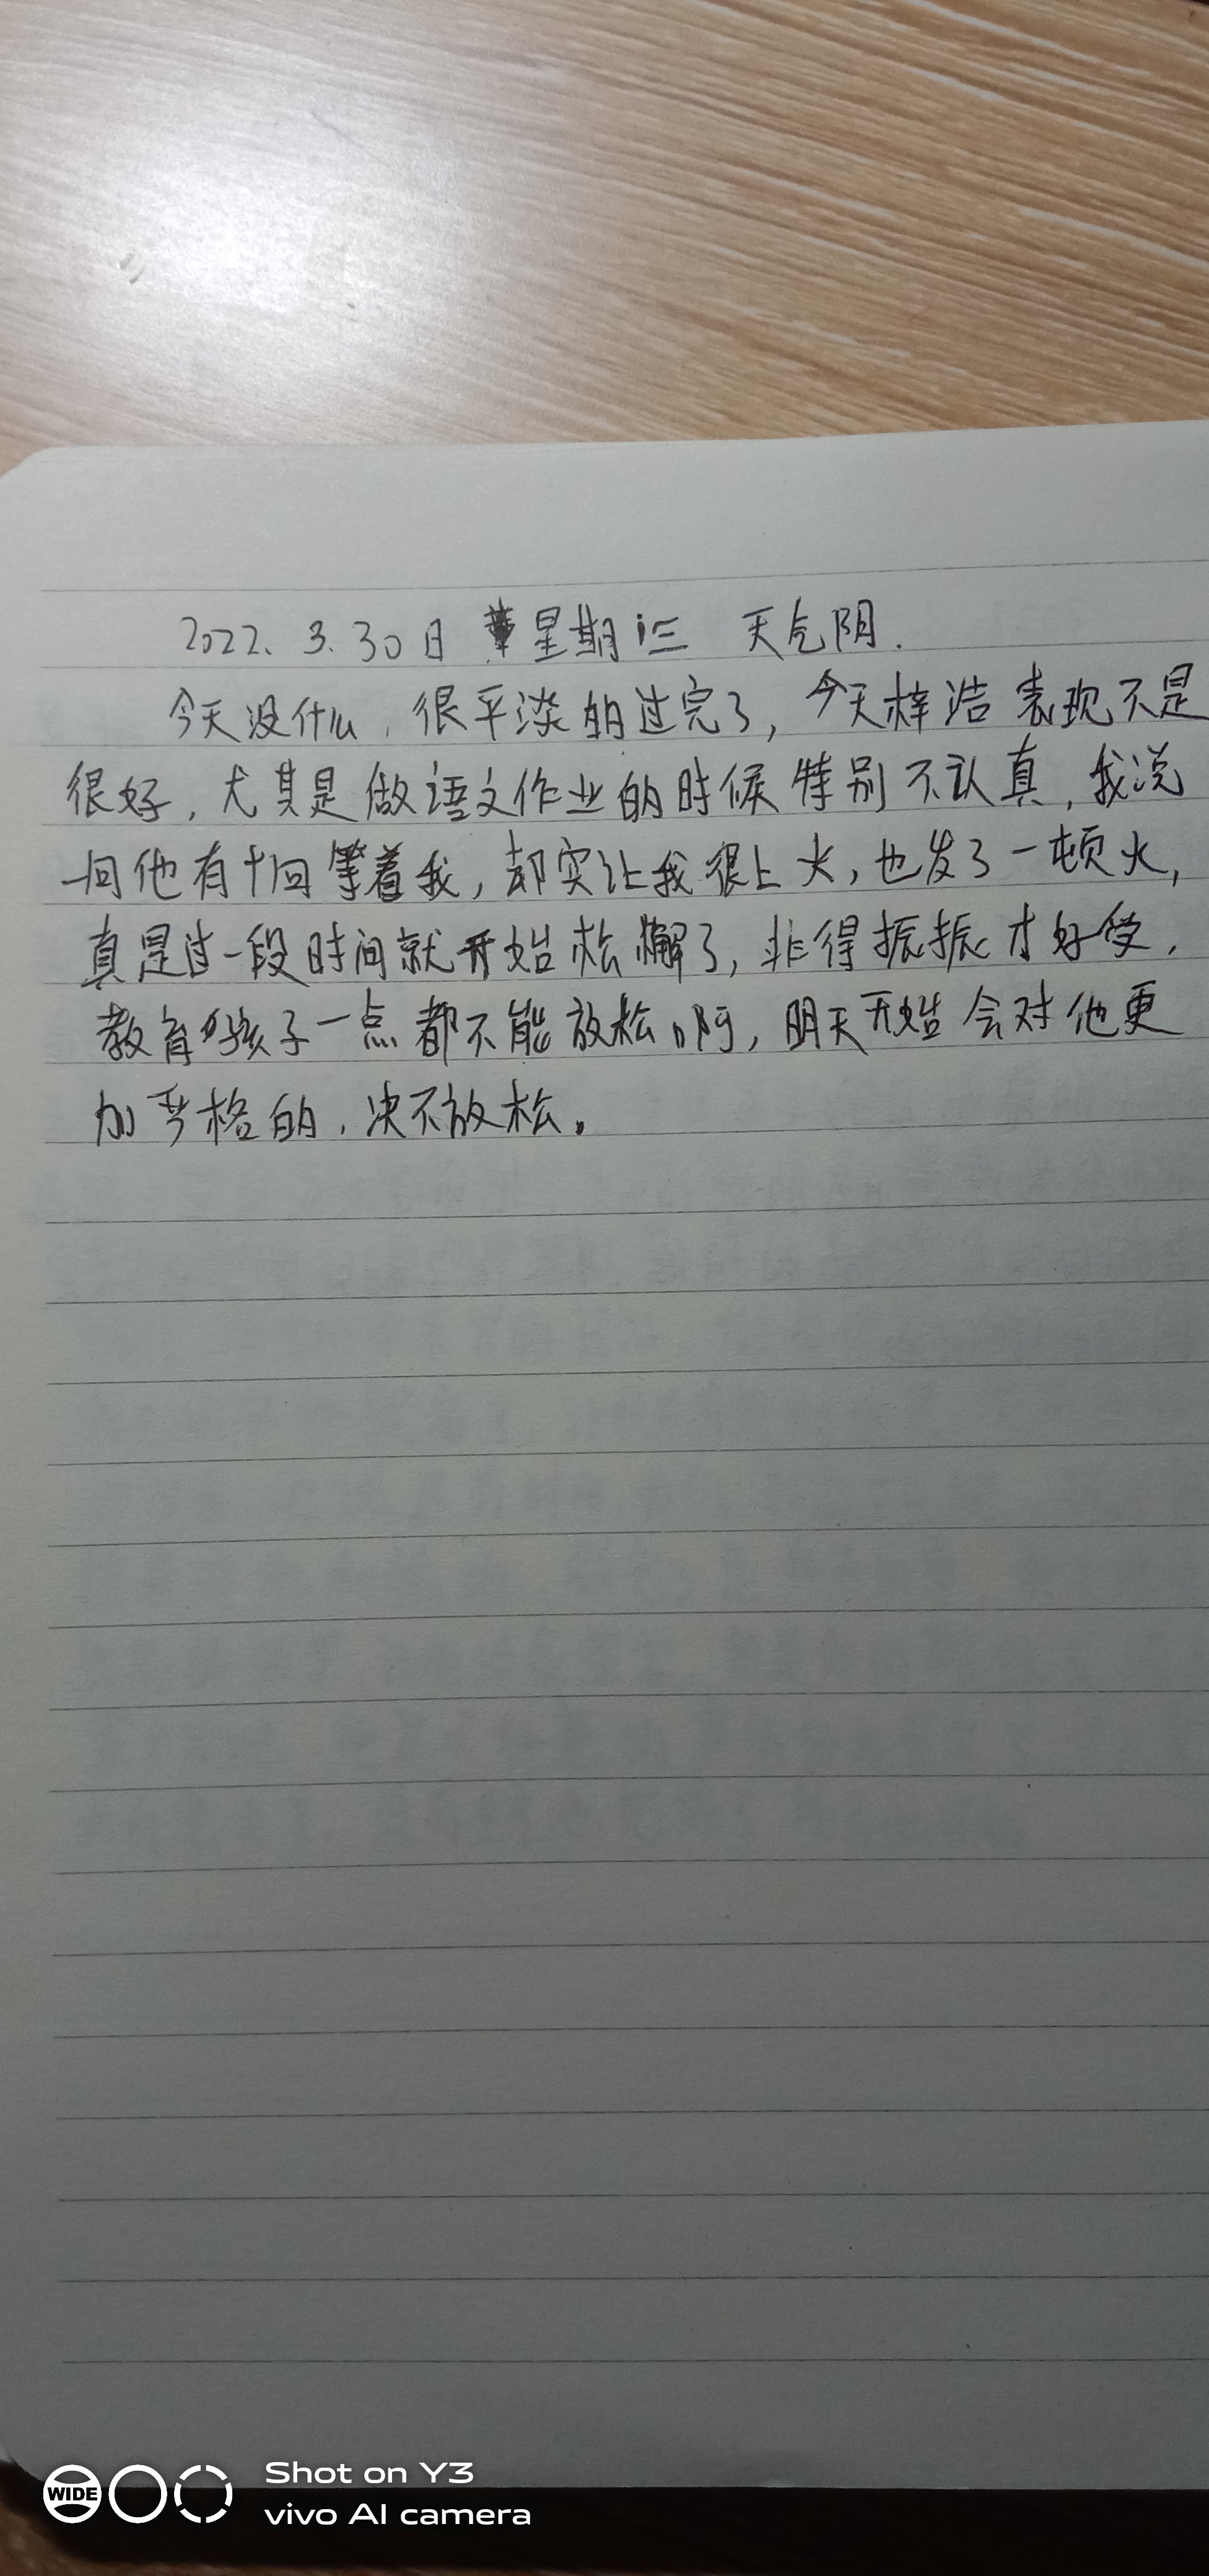 2022.3.30日 星期三 天气阴.
今天没什么,很平淡的过完了,今天梓浩表现不是
很好,尤其是做语文作业的时候特别不认真,我说
一回他有十回等着我,却实让我很上火,也发了一顿火,
真是过一段时间就开始松懈了,非得振振才好受,
教育孩子一点都不能放松啊,明天开始会对他更
加严格的,决不放松。
WIDE
Shot on Y3
vivo AI camera